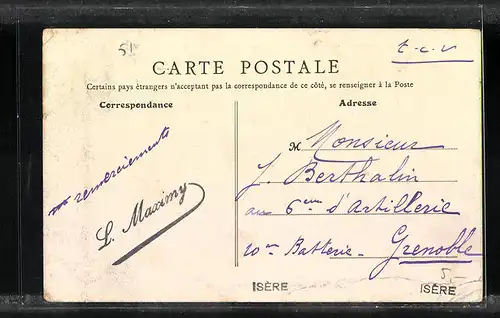 51
t.c.v
CARTE POSTALE
Certains pays étrangers n'acceptant pas la correspondance de ce côté, se renseigner à la Poste
Correspondance
Adresse
remerciements
L. Maximy
M Monsieur
J. Berthalin
au 6eme d'Artillerie
10me Batterie - Grenoble
ISÈRE
5.-
ISÈRE